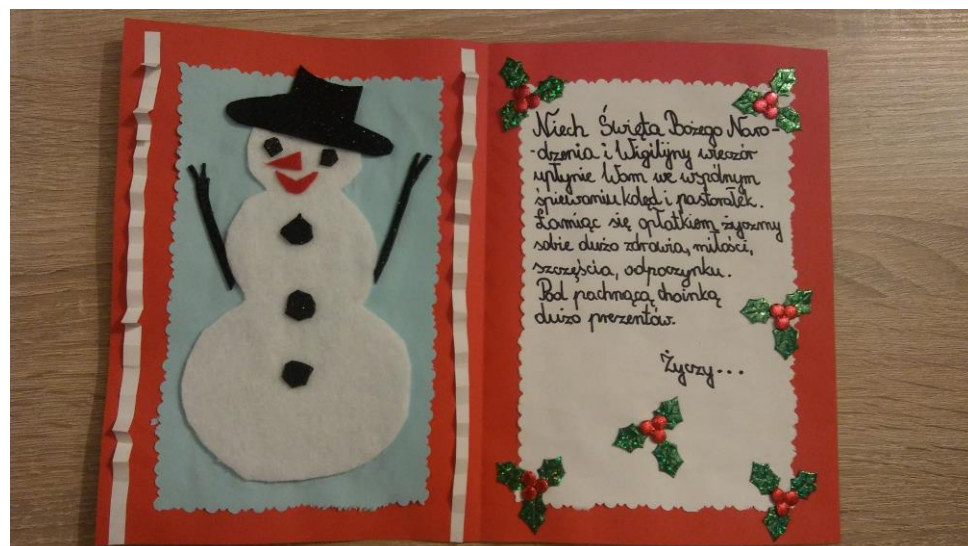 Niech Święta Bożego Naro-
-dzenia i Wigilijny wieczór
upłynie Wam we wspólnym
śpiewaniu kolęd i pastorałek.
Łamiąc się opłatkiem życzmy
sobie dużo zdrowia, miłości,
szczęścia, odpoczynku.
Pod pachnącą choinką
dużo prezentów.
Życzy...